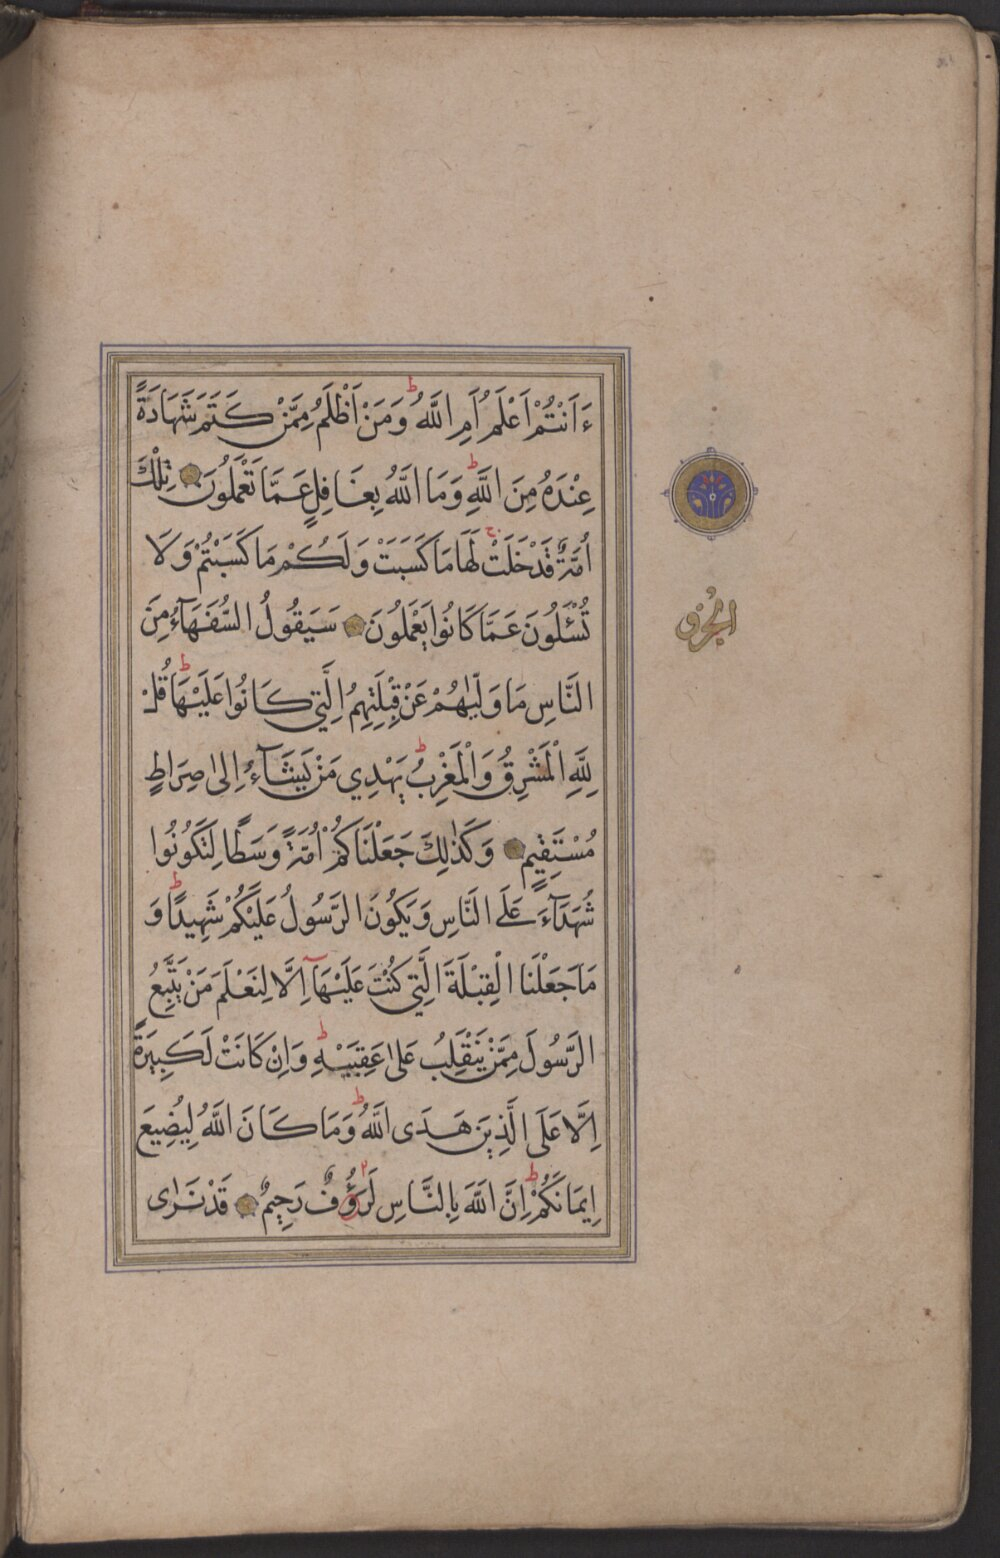 ءَاَنْتُمْ اَعْلَمُ اَمِ اللَّهُ ۗ وَمَنْ اَظْلَمُ مِمَّنْ كَتَمَ شَهَادَةً
عِنْدَهُ مِنَ اللَّهِ ۗ وَمَا اللَّهُ بِغَافِلٍ عَمَّا تَعْمَلُونَ ۝ تِلْكَ
اُمَّةٌ قَدْ خَلَتْ ۚ لَهَا مَا كَسَبَتْ وَلَكُمْ مَا كَسَبْتُمْ وَلَا
تُسْئَلُونَ عَمَّا كَانُوا يَعْمَلُونَ ۝ سَيَقُولُ السُّفَهَآءُ مِنَ
النَّاسِ مَا وَلّٰيهُمْ عَنْ قِبْلَتِهِمُ الَّتِي كَانُوا عَلَيْهَا ۗ قُلْ
لِلَّهِ الْمَشْرِقُ وَالْمَغْرِبُ ۗ يَهْدِي مَنْ يَشَآءُ اِلٰى صِرَاطٍ
مُسْتَقِيمٍ ۝ وَكَذٰلِكَ جَعَلْنَاكُمْ اُمَّةً وَسَطًا لِتَكُونُوا
شُهَدَآءَ عَلَى النَّاسِ وَيَكُونَ الرَّسُولُ عَلَيْكُمْ شَهِيدًا ۗ وَ
مَا جَعَلْنَا الْقِبْلَةَ الَّتِي كُنْتَ عَلَيْهَآ اِلَّا لِنَعْلَمَ مَنْ يَتَّبِعُ
الرَّسُولَ مِمَّنْ يَنْقَلِبُ عَلٰى عَقِبَيْهِ ۗ وَاِنْ كَانَتْ لَكَبِيرَةً
اِلَّا عَلَى الَّذِينَ هَدَى اللَّهُ ۗ وَمَا كَانَ اللَّهُ لِيُضِيعَ
اِيمَانَكُمْ ۗ اِنَّ اللَّهَ بِالنَّاسِ لَرَؤُفٌ رَحِيمٌ ۝ قَدْ نَرٰى
الجزء